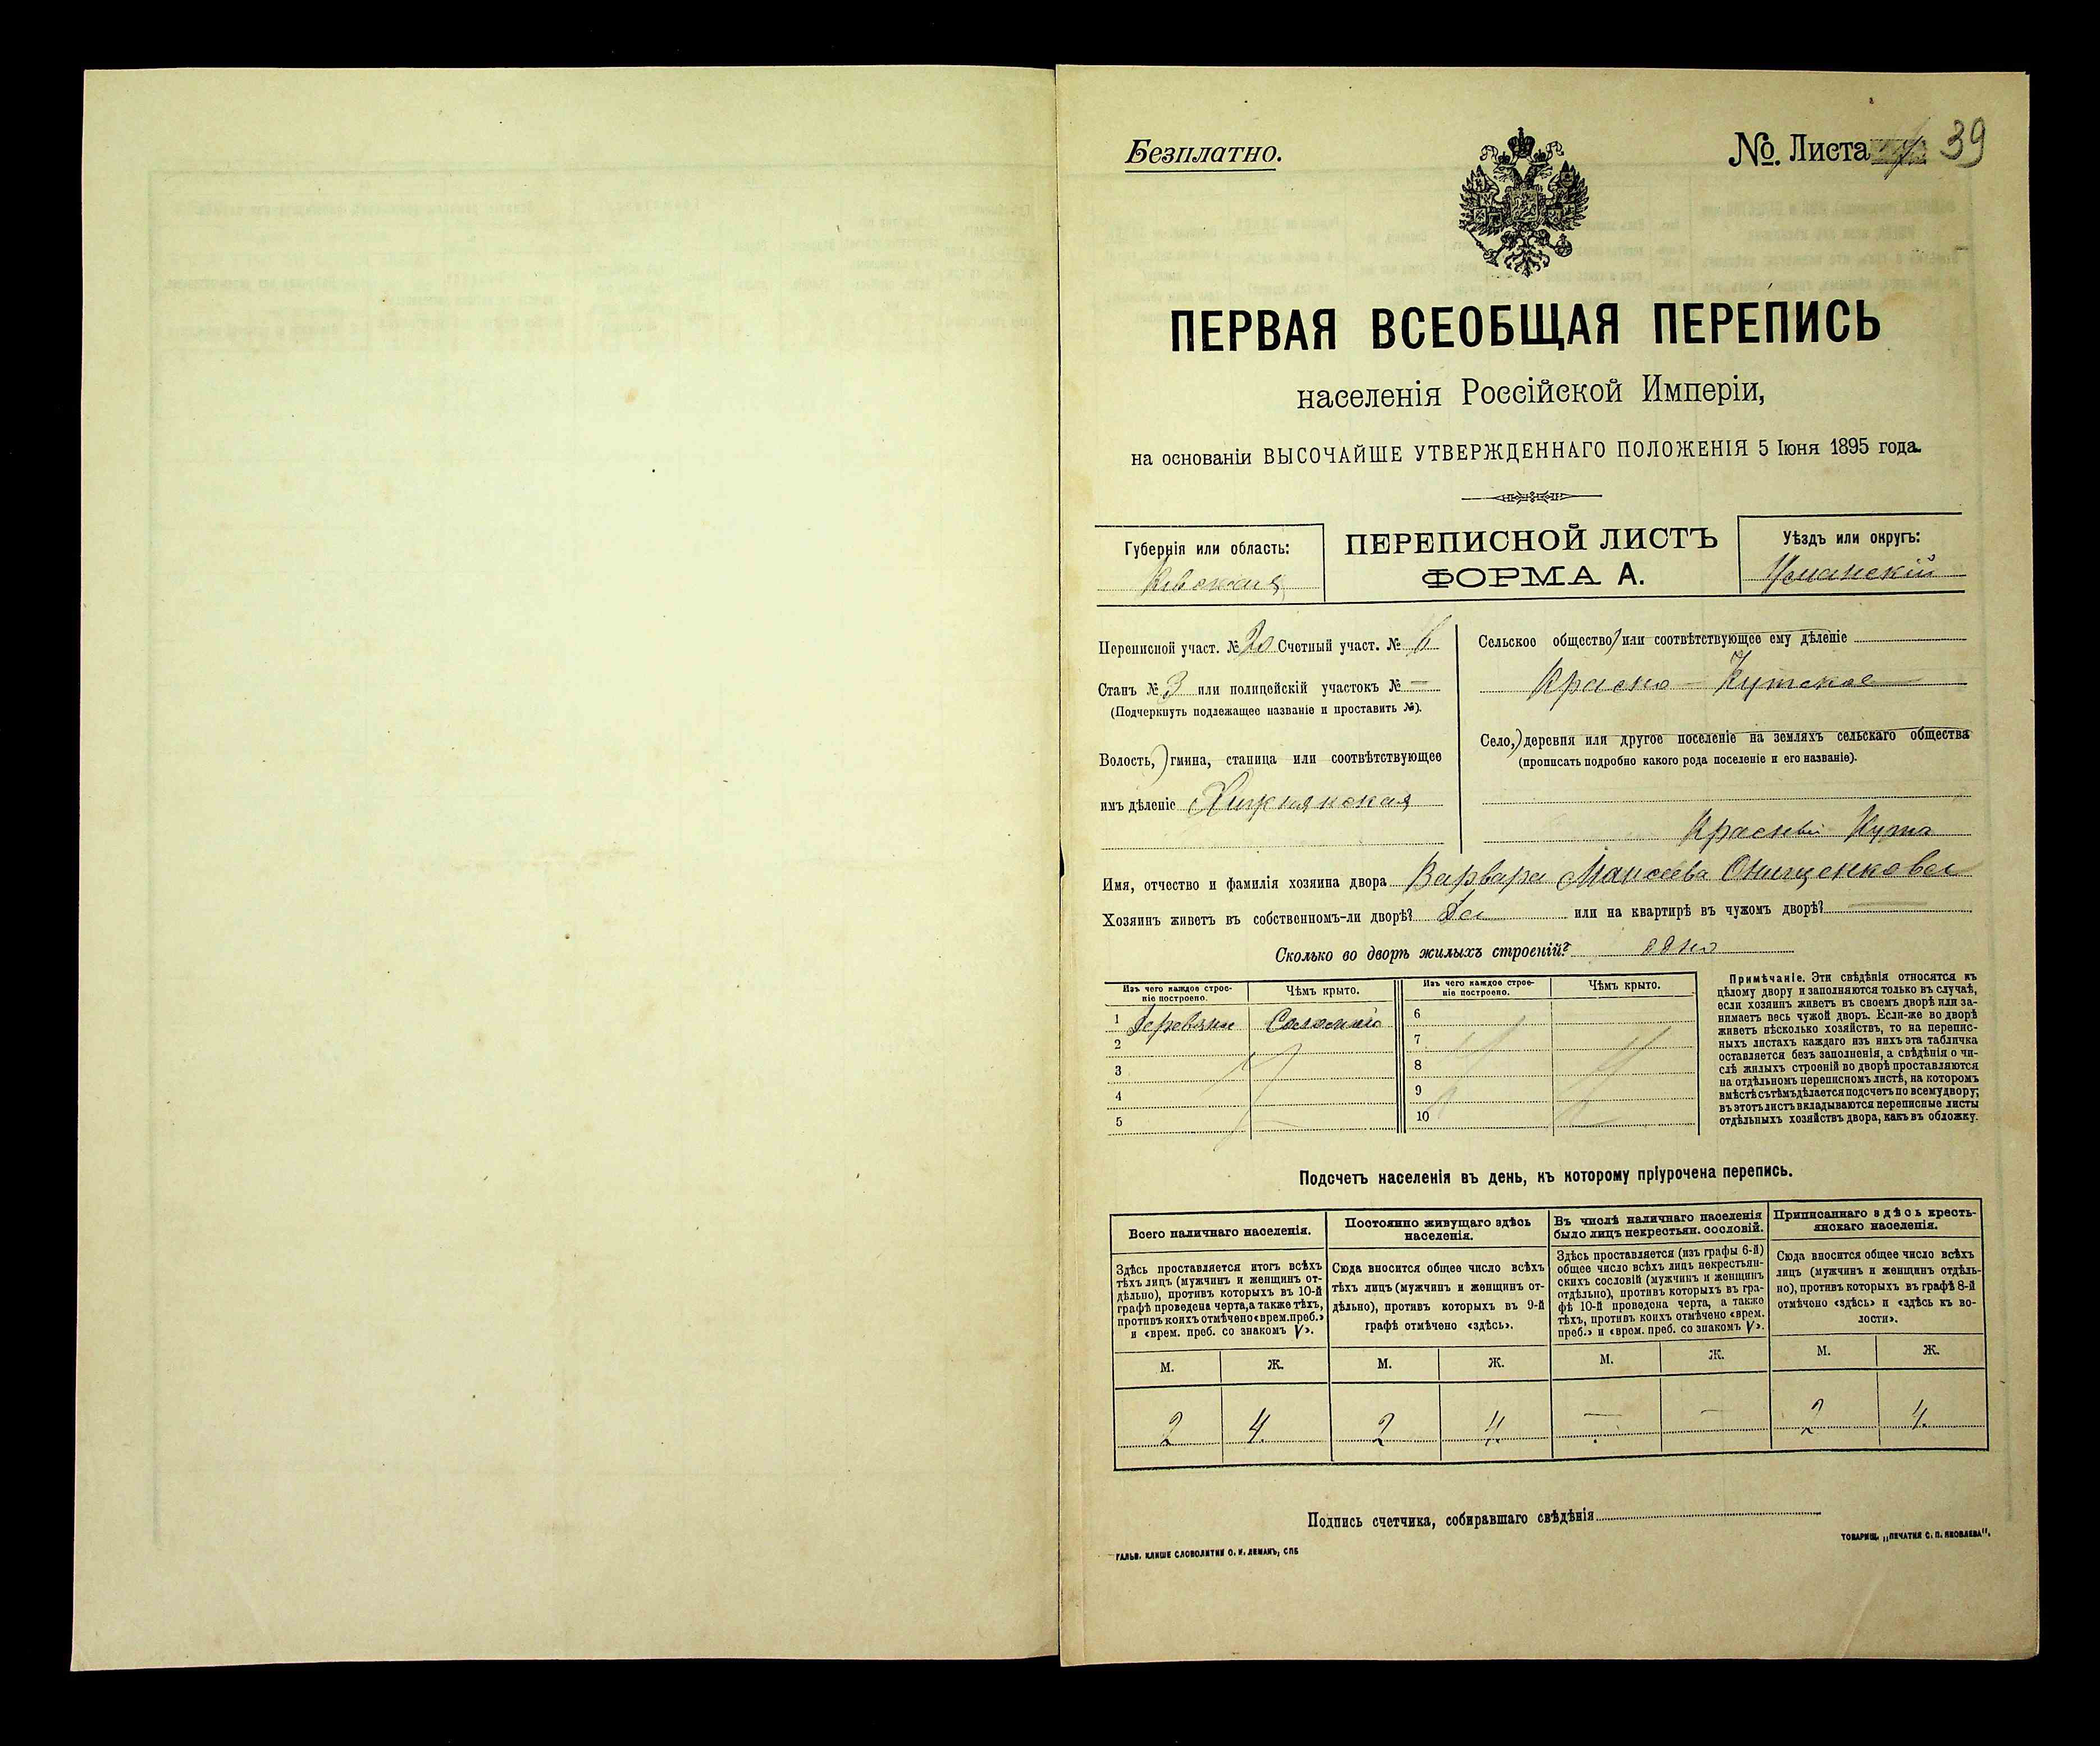 Безплатно.
№. Листа 39
ПЕРВАЯ ВСЕОБЩАЯ ПЕРЕПИСЬ
населенія Россійской Имперіи,
на основаніи ВЫСОЧАЙШЕ УТВЕРЖДЕННАГО ПОЛОЖЕНІЯ 5 Іюня 1895 года.
Губернія или область:
Кіевская
ПЕРЕПИСНОЙ ЛИСТЪ
ФОРМА А.
Уѣздъ или округъ:
Уманскій
Переписной участ. № 20 Счетный участ. № 6
Станъ № 3 или полицейскій участокъ № —
(Подчеркнуть подлежащее названіе и проставить №).
Волость, гмина, станица или соотвѣтствующее
имъ дѣленіе Хижнянская
Сельское общество или соотвѣтствующее ему дѣленіе
Красно-Кутское
Село, деревня или другое поселеніе на земляхъ сельскаго общества
(прописать подробно какого рода поселеніе и его названіе).
Красный Кутъ
Имя, отчество и фамилія хозяина двора Варвара Моисеева Онищенкова
Хозяинъ живетъ въ собственномъ-ли дворѣ? Да или на квартирѣ въ чужомъ дворѣ? —
Сколько во дворѣ жилыхъ строеній? одно
Изъ чего каждое строе-
ніе построено.
Чѣмъ крыто.
Изъ чего каждое строе-
ніе построено.
Чѣмъ крыто.
1 Деревян Соломою
2
3
4
5
6
7
8
9
10
Примѣчаніе. Эти свѣдѣнія относятся къ
цѣлому двору и заполняются только въ случаѣ,
если хозяинъ живетъ въ своемъ дворѣ или за-
нимаетъ весь чужой дворъ. Если-же во дворѣ
живетъ нѣсколько хозяйствъ, то на перепис-
ныхъ листахъ каждаго изъ нихъ эта табличка
оставляется безъ заполненія, а свѣдѣнія о чи-
слѣ жилыхъ строеній во дворѣ проставляются
на отдѣльномъ переписномъ листѣ, на которомъ
вмѣстѣ съ тѣмъ дѣлается подсчетъ по всему двору;
въ этотъ листъ вкладываются переписные листы
отдѣльныхъ хозяйствъ двора, какъ въ обложку.
Подсчетъ населенія въ день, къ которому пріурочена перепись.
Всего наличнаго населенія.
Здѣсь проставляется итогъ всѣхъ
тѣхъ лицъ (мужчинъ и женщинъ от-
дѣльно), противъ которыхъ въ 10-й
графѣ проведена черта, а также тѣхъ,
противъ коихъ отмѣчено «врем. преб.»
и «врем. преб. со знакомъ V».
Постоянно живущаго здѣсь
населенія.
Сюда вносится общее число всѣхъ
тѣхъ лицъ (мужчинъ и женщинъ от-
дѣльно), противъ которыхъ въ 9-й
графѣ отмѣчено «здѣсь».
Въ числѣ наличнаго населенія
было лицъ некрестьян. сословій.
Здѣсь проставляется (изъ графы 6-й)
общее число всѣхъ лицъ некрестьян-
скихъ сословій (мужчинъ и женщинъ
отдѣльно), противъ которыхъ въ гра-
фѣ 10-й проведена черта, а также
тѣхъ, противъ коихъ отмѣчено «врем.
преб.» и «врем. преб. со знакомъ V».
Приписаннаго здѣсь кресть-
янскаго населенія.
Сюда вносится общее число всѣхъ
лицъ (мужчинъ и женщинъ отдѣль-
но), противъ которыхъ въ графѣ 8-й
отмѣчено «здѣсь» и «здѣсь къ во-
лости».
М. Ж. М. Ж. М. Ж. М. Ж.
2 4 2 4 — — 2 4
Подпись счетчика, собиравшаго свѣдѣнія
ГАЛЬВ. КЛИШЕ СЛОВОЛИТНИ О. И. ЛЕМАНЪ, СПБ
ТОВАРИЩ. „ПЕЧАТНЯ С. П. ЯКОВЛЕВА“.